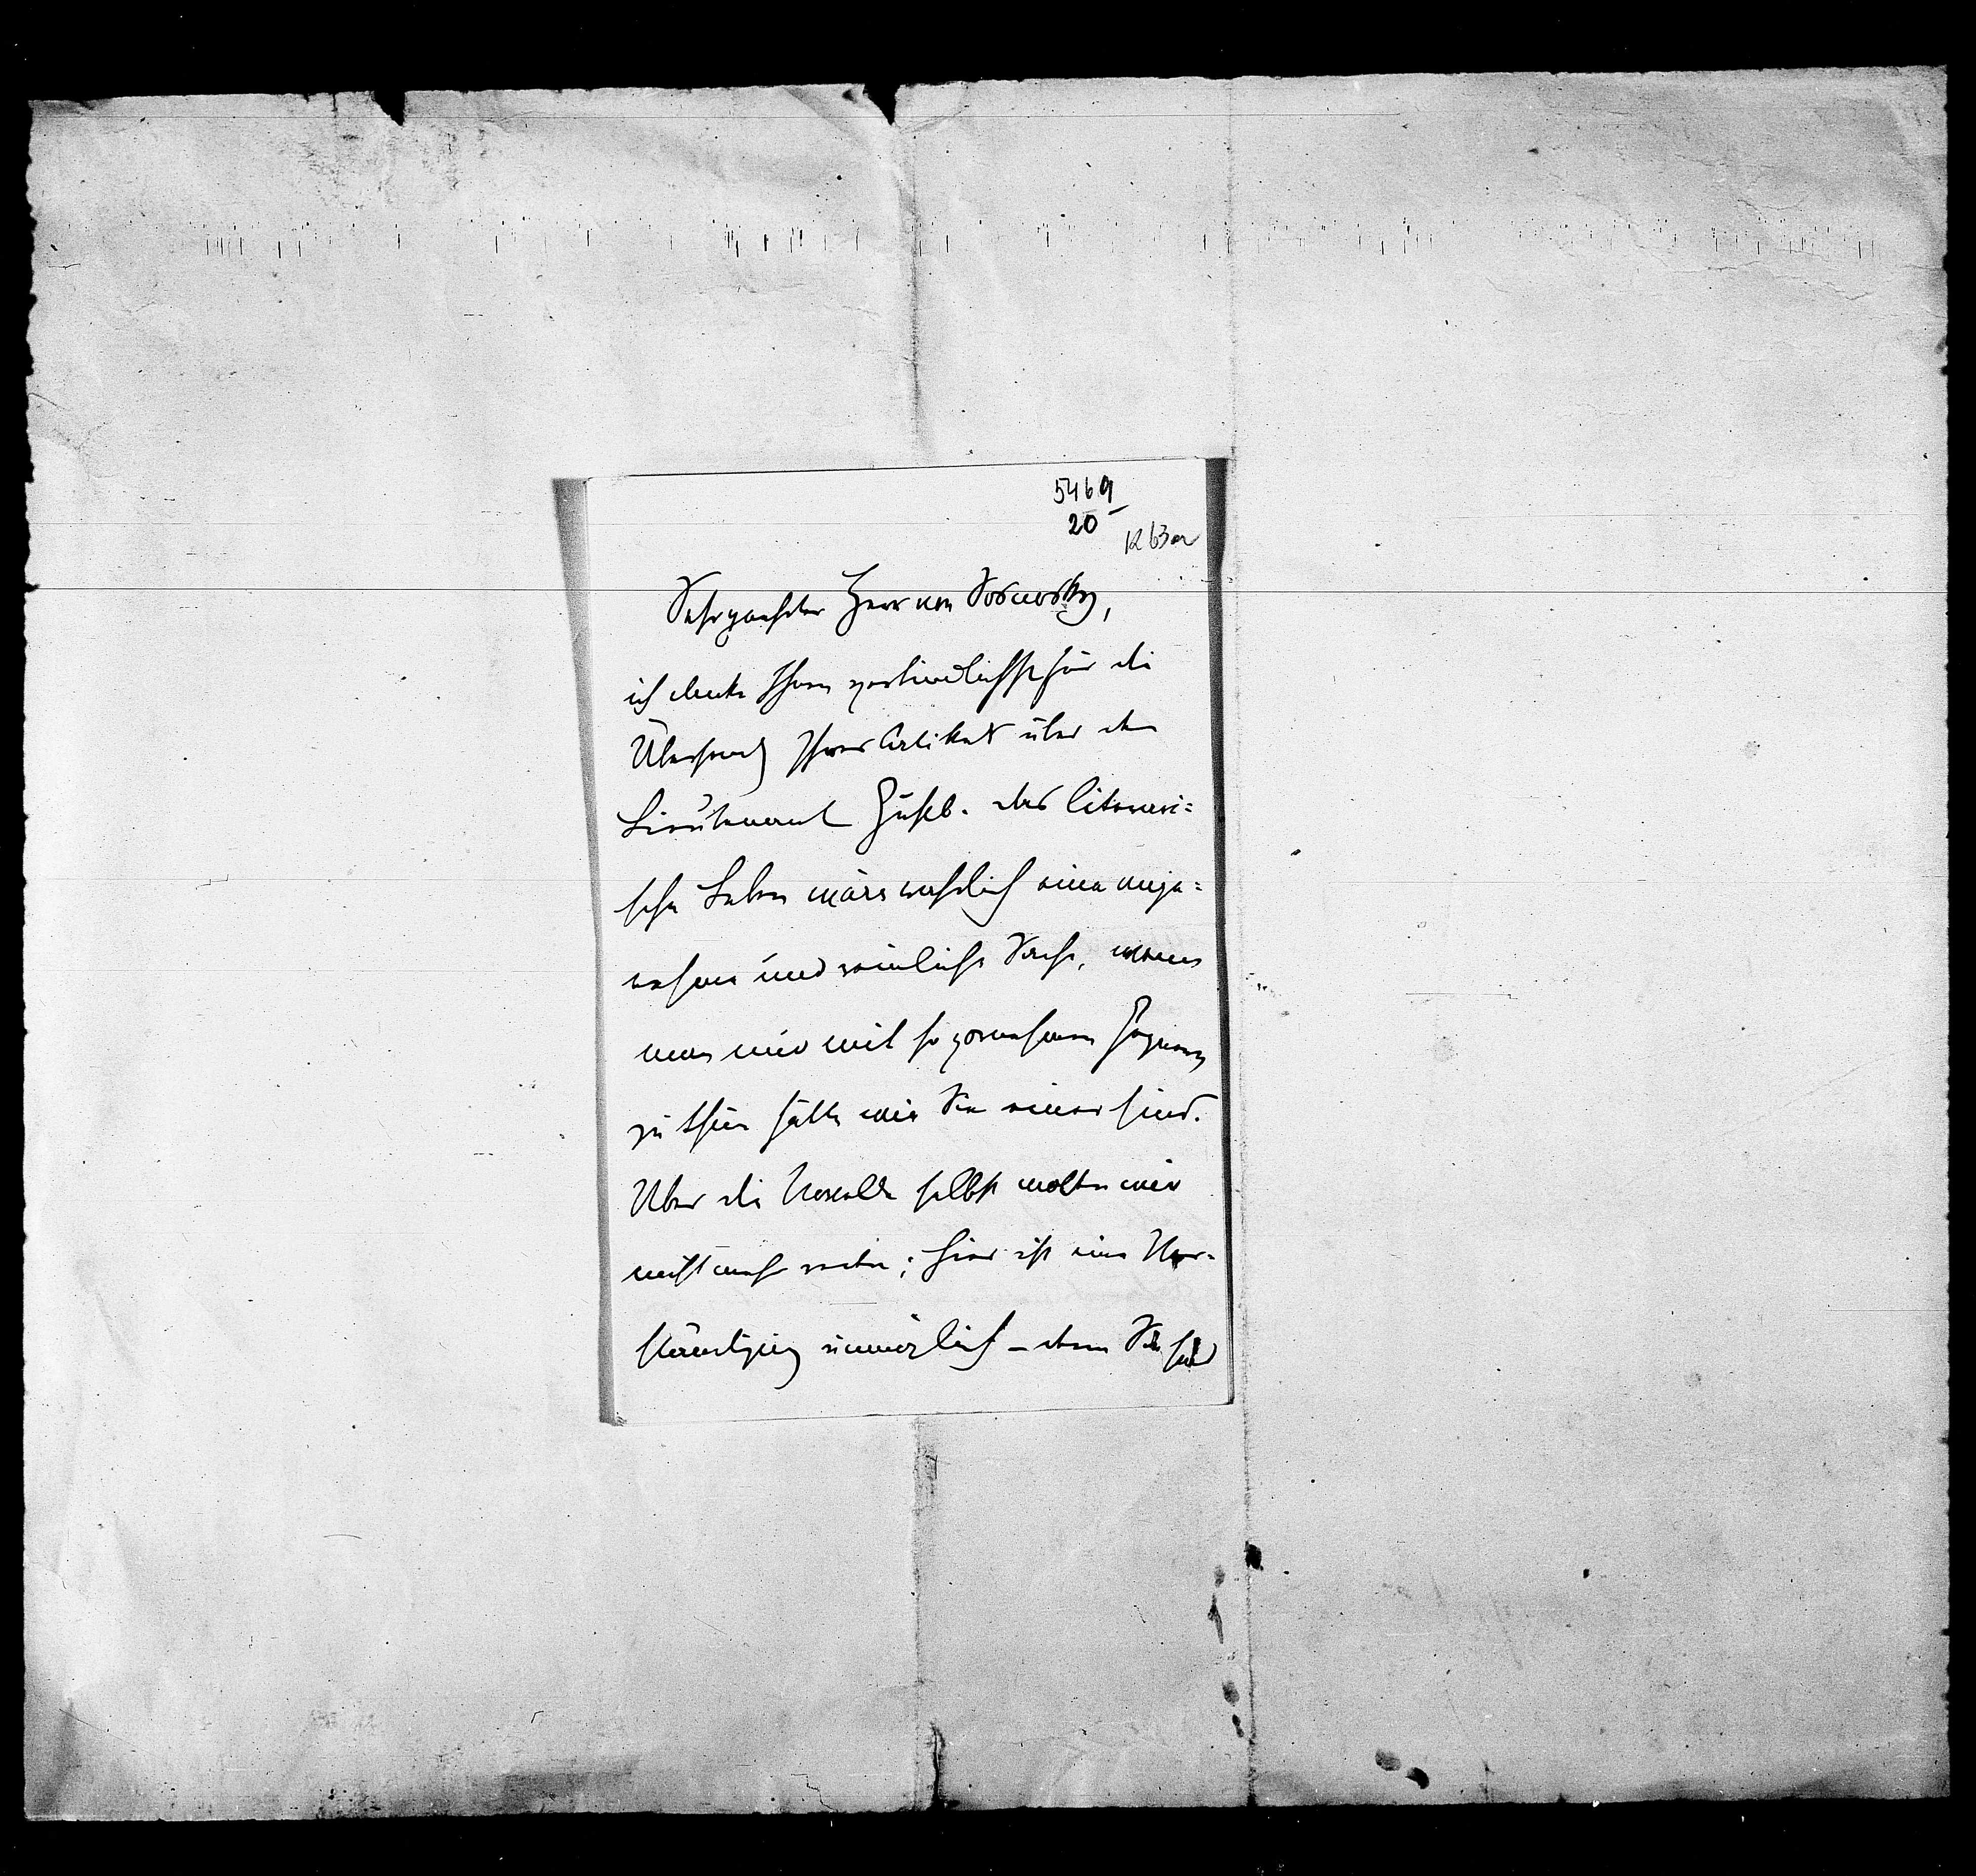 5469
20
K 63a
Sehr geehrter Herr von Sosnosky,
ich danke Ihnen verbindlichst für die
Übersendg Ihres Artikels über den
Lieutenant Gustl. das literari=
sche Leben wäre wahrlich eine ange=
nehme und reinliche Sache, wenn
man nur mit so vornehmen Gegnern
zu thun hätte wie Sie einer sind.
Über die Novelle selbst wollen wir
nicht mehr rechten; hier ist eine Ver-
ständigung unmöglich – denn Sie sind